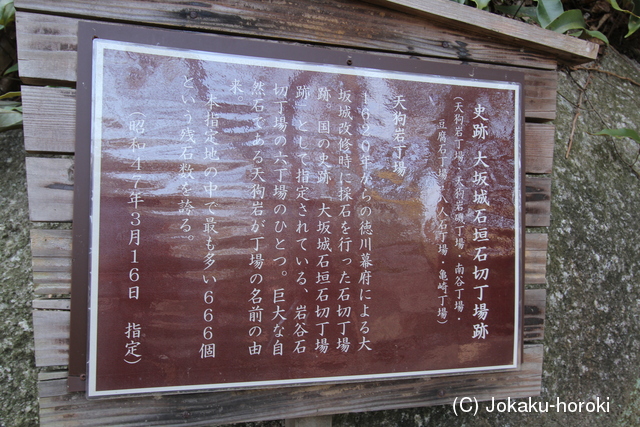 史跡 大坂城石垣石切丁場跡
(天狗岩丁場・天狗岩磯丁場・南谷丁場・
豆腐石丁場・八人石丁場・亀崎丁場)
天狗岩丁場
1620年からの徳川幕府による大
坂城改修時に採石を行った石切丁場
跡。国の史跡 大坂城石垣石切丁場
跡 として指定されている、岩谷石
切丁場の六丁場のひとつ。巨大な自
然石である天狗岩が丁場の名前の由
来。
本指定地の中で最も多い666個
という残石数を誇る。
(昭和47年3月16日 指定)
(C) Jokaku-horoki